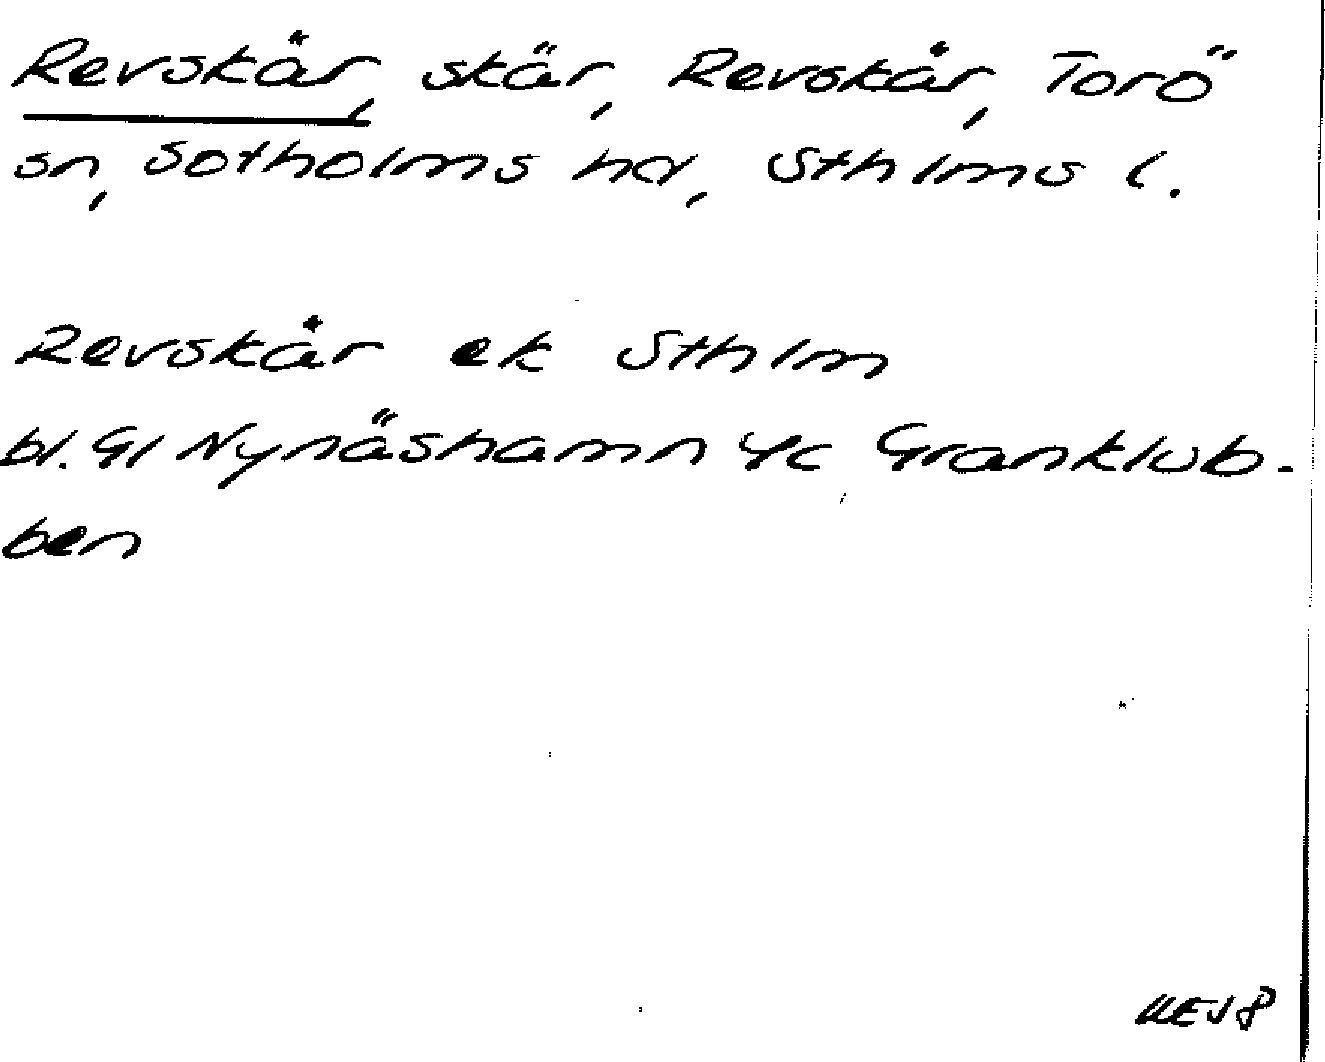 Revskär, skär, Revskår, Torö
sn, Sotholms hd, Sthlms l.
Revskår ek Sthlm
bl. Gl Nynäshamn 4c Granklub-
ben